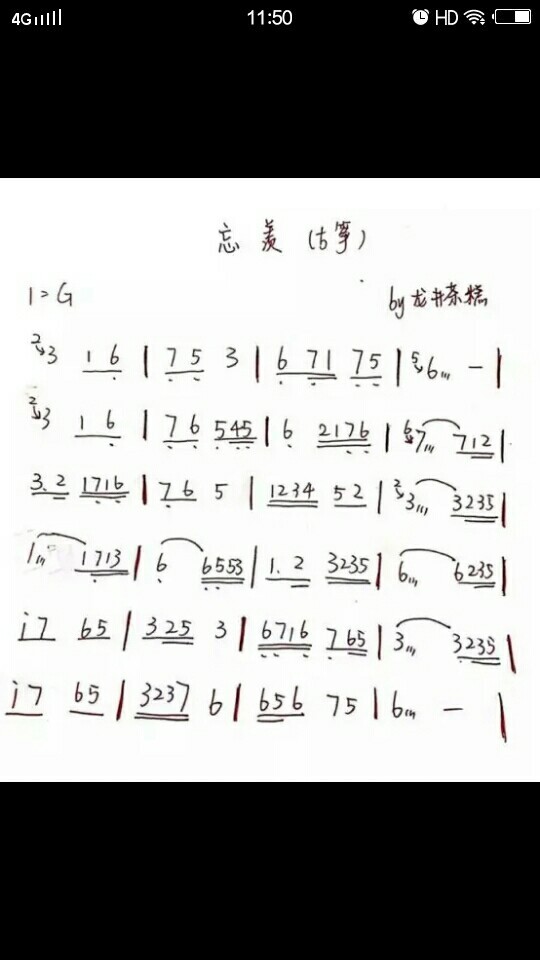 4G 11:50 HD
忘羡（古筝）
1=G by龙井茶糕
²3 1 6 | 7 5 3 | 6 7 1 7 5 | ⁵6 - |
²3 1 6 | 7 6 5 4 5 | 6 2 1 7 6 | ⁶7 7 1 2 |
3. 2 1 7 1 6 | 7 6 5 | 1 2 3 4 5 2 | ²3 3 2 3 5 |
1 1 7 1 3 | 6 6 5 5 3 | 1. 2 3 2 3 5 | 6 6 2 3 5 |
i 7 6 5 | 3 2 5 3 | 6 7 1 6 7 6 5 | 3 3 2 3 5 |
i 7 6 5 | 3 2 3 7 6 | 6 5 6 7 5 | 6 - |